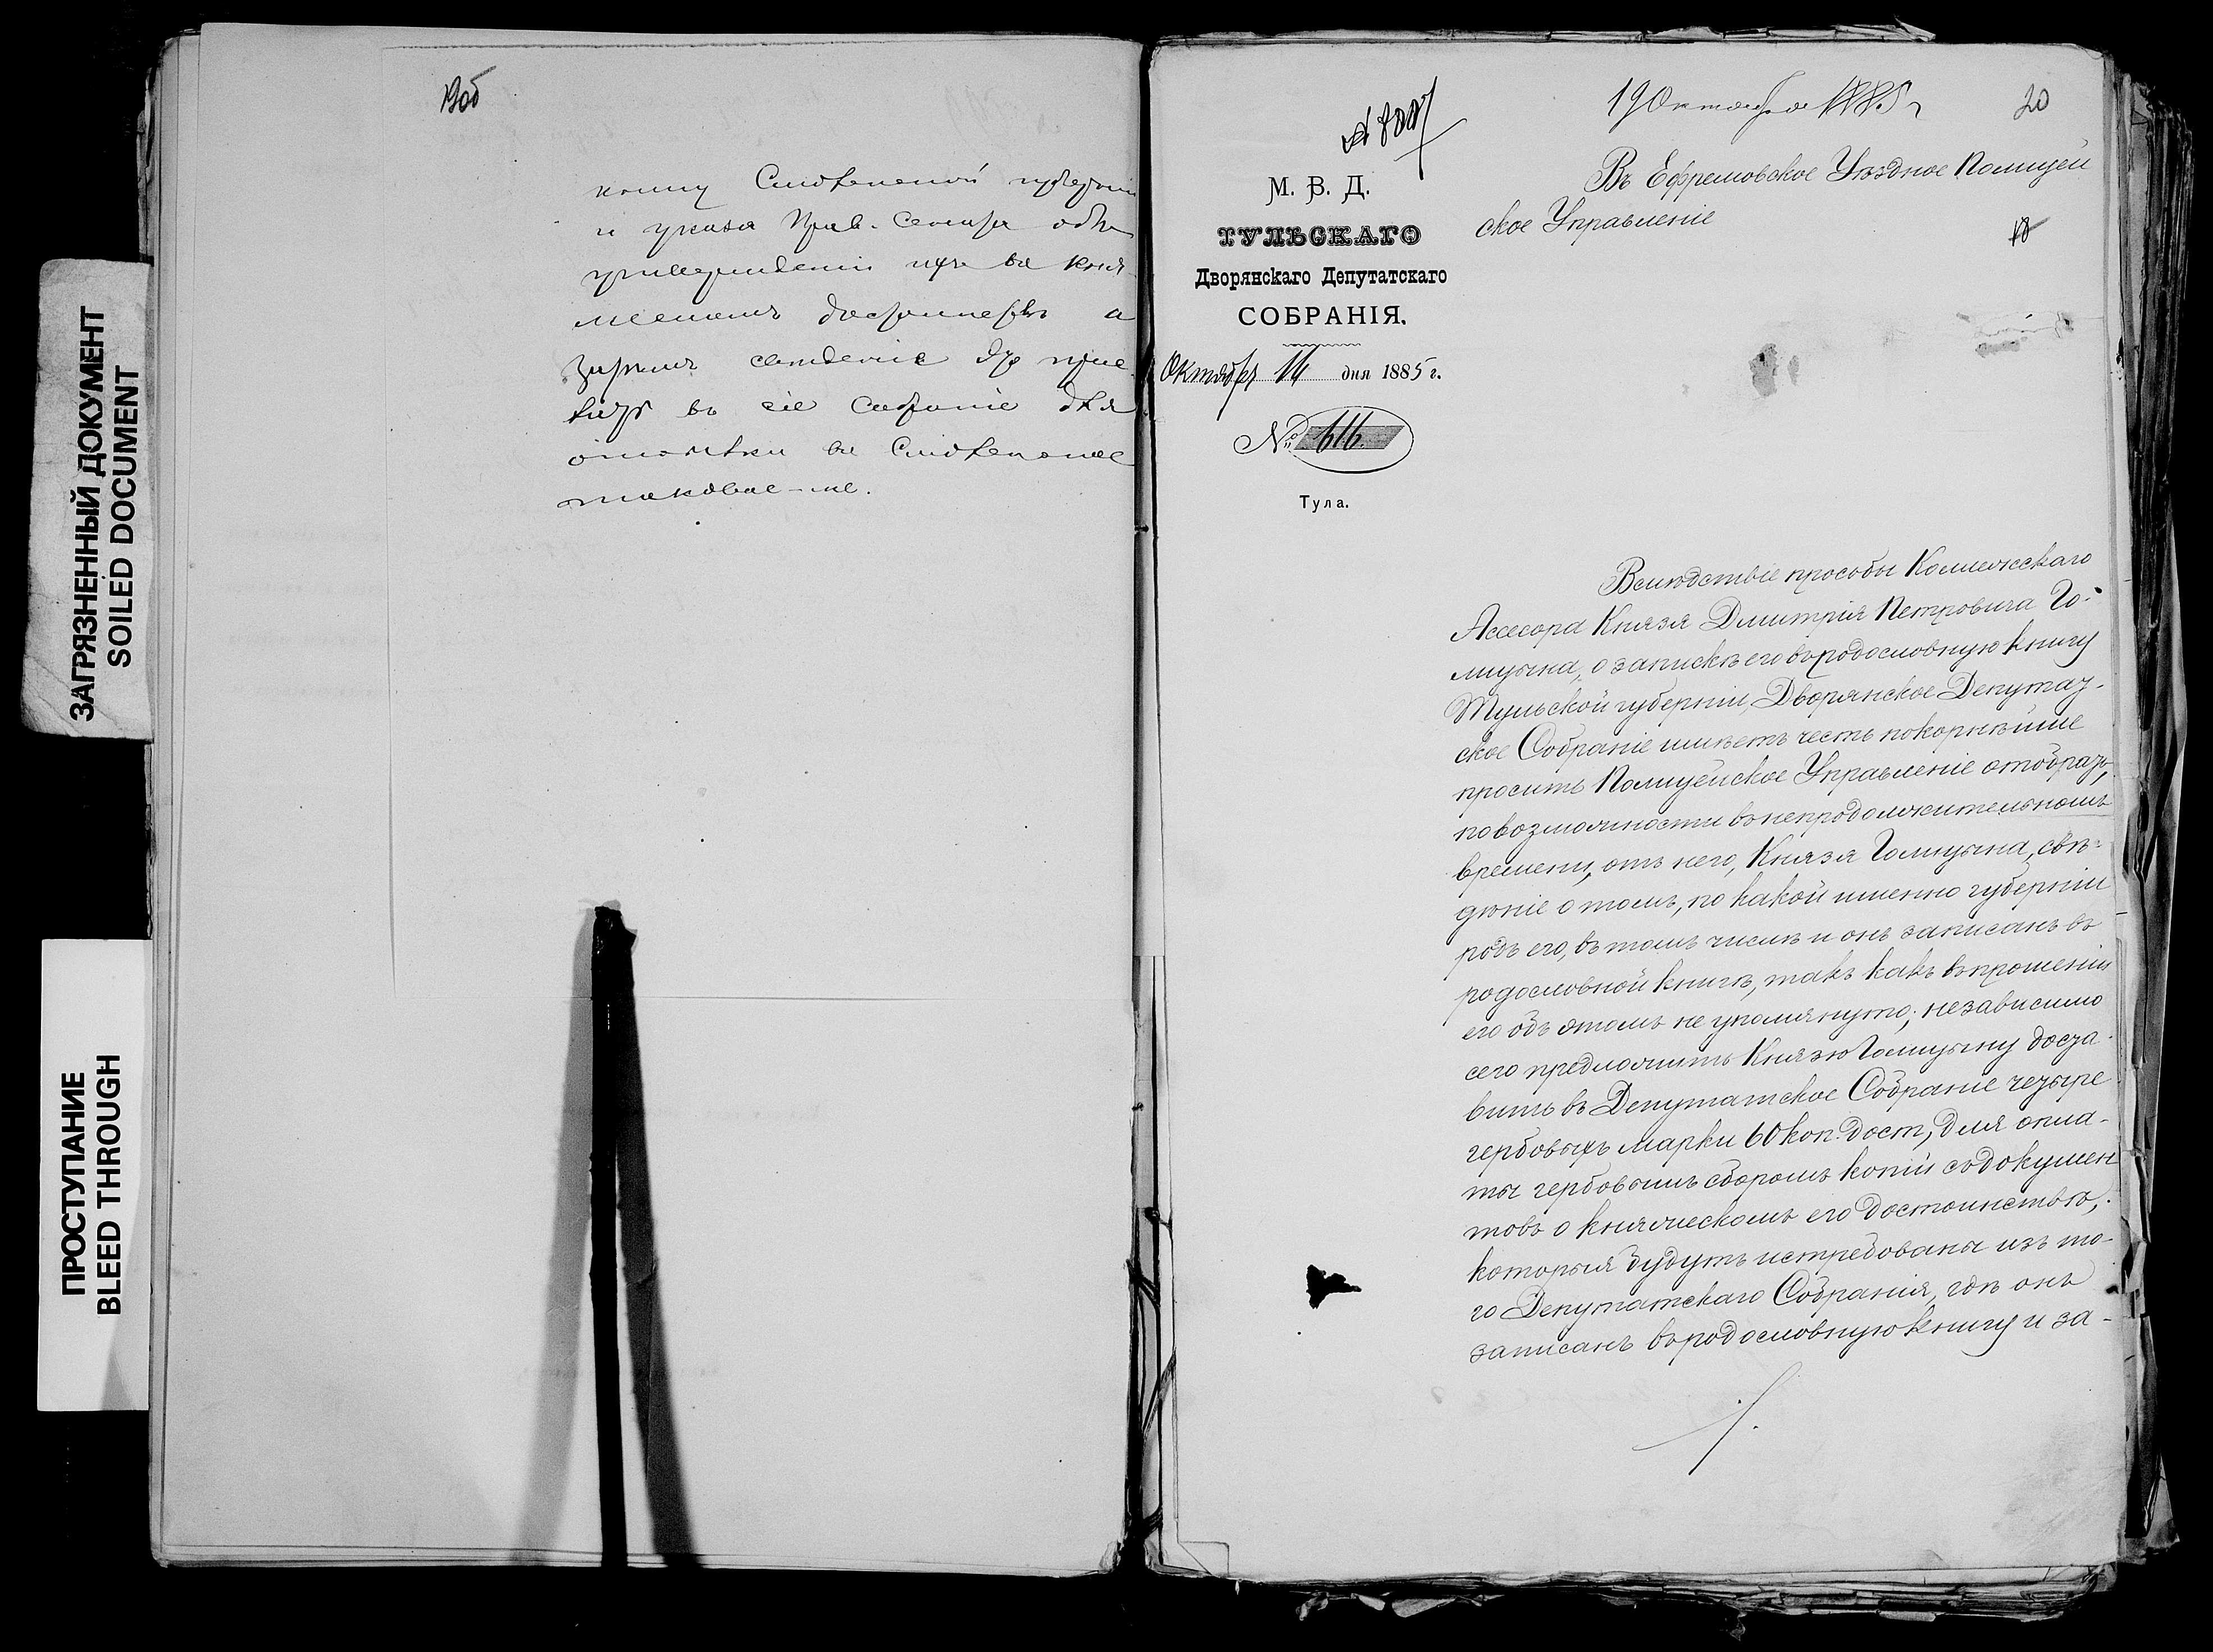 ЗАГРЯЗНЕННЫЙ ДОКУМЕНТ
SOILED DOCUMENT
ПРОСТУПАНИЕ
BLEED THROUGH
19об
книгу
и указа Прав. Сената объ
утвержденіи ихъ въ княжескомъ достоинствѣ а
затемъ
въ сіе Собраніе для
отмѣтки въ
таковое-же.
19 Октября 1885 г
20
М. В. Д.
ТУЛЬСКАГО
Дворянскаго Депутатскаго
СОБРАНІЯ.
Октября 14 дня 1885 г.
№ 616.
Тула.
Въ Ефремовское Уѣздное Полицей
ское Управленіе
Вслѣдствіе прозьбы Коллежскаго
Ассесора Князя Дмитрія Петровича Го-
лицына, о запискѣ его въ родословную книгу
Тульской губерніи, Дворянское Депутат-
ское Собраніе имѣетъ честь покорнѣйше
просить Полицейское Управленіе отобрать,
по возможности въ непродолжительномъ
времени, отъ него, Князя Голицына, свѣ-
дѣніе о томъ, по какой именно губерніи
родъ его, въ томъ числѣ и онъ записанъ въ
родословной книгѣ, такъ какъ въ прошеніи
его объ этомъ не упомянуто; независимо
сего предложить Князю Голицыну доста-
вить въ Депутатское Собраніе четыре
гербовыхъ марки 60 коп. дост, для опла-
ты гербовымъ сборомъ копій съ докумен
товъ о княжескомъ его достоинствѣ,
которыя будутъ истребованы изъ то-
го Депутатскаго Собранія, гдѣ онъ
записанъ въ родословную книгу и за-